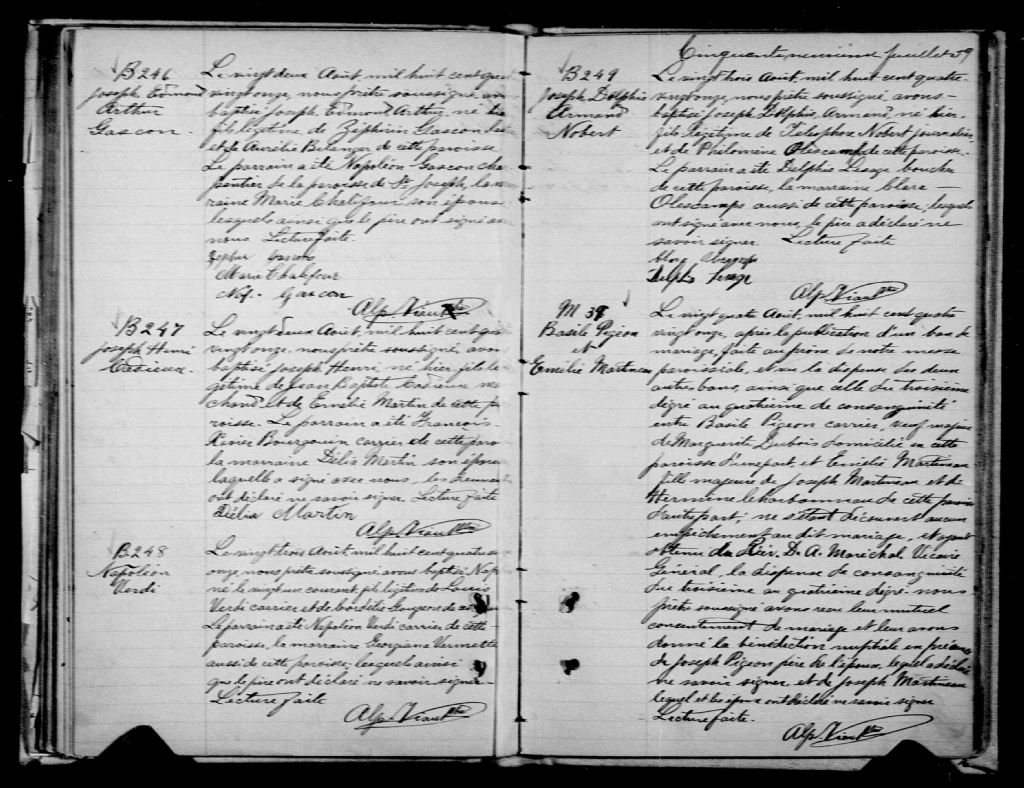 B246
Joseph Edmond
Arthur
Gascon.
Le vingt deux Août, mil huit cent quatre
vingt onze, nous prêtre soussigné, avons
baptisé Joseph Edmond Arthur, né hier
fils légitime de Zéphirin Gascon
et de Aurélie Bélanger de cette paroisse
Le parrain a été Napoléon Gascon char
pentier de la paroisse de St Joseph, la mar
raine Marie Chalifour son épouse
lesquels ainsi que le père ont signé avec
nous. Lecture faite.
Gascon
Marie Chalifour
Nap. Gascon
Alp. Viau Ptre
B247
Joseph Henri
Cadieux.
Le vingt deux Août, mil huit cent quatre
vingt onze, nous prêtre soussigné, avons
baptisé Joseph Henri né hier fils lé
gitime de Jean Baptiste Cadieux
chand et de Emélie Martin de cette pa
roisse. Le parrain a été François
Bourgouin carrier de cette paroisse
la marraine Délia Martin son épouse
laquelle a signé avec nous, les
ont déclaré ne savoir signer. Lecture faite
Délia Martin
Alp. Viau Ptre
B248
Napoléon
Verdi
Le vingt trois Août, mil huit cent quatre vingt
onze nous prêtre soussigné avons baptisé Napoléon
né le vingt un courant, fils légitime de Louis
Verdi carrier et de
Le parrain a été Napoléon Verdi carrier de cette
paroisse, la marraine Georgiana Vermette
aussi de cette paroisse, lesquels ainsi
que le père ont déclaré ne savoir signer
Lecture faite
Alp. Viau Ptre
Cinquante neuvième feuillet 59
B249
Joseph Delphis
Armand
Nobert
Le vingt trois Août, mil huit cent quatre
vingt onze, nous prêtre soussigné, avons
baptisé Joseph Delphis, Armand, né hier,
fils légitime de Télesphore Nobert journalier
et de Philomène Olescamps de cette paroisse.
Le parrain a été Delphis Lesage boucher
de cette paroisse, la marraine Clara
Olescamps aussi de cette paroisse, lesquels
ont signé avec nous, le père a déclaré ne
savoir signer. Lecture faite
Delphis Lesage
Alp. Viau Ptre
M 39
Basile Pigeon
et
Emélie Martineau
Le vingt quatre Août, mil huit cent quatre
vingt onze, après la publication d'un ban de
mariage, faite au prône de notre messe
paroissiale, et vu la dispense des deux
autres bans, ainsi que celle du troisième
dégré au quatrième de consanguinité
entre Basile Pigeon carrier, veuf majeur
de Marguerite Dubois domicilié en cette
paroisse d'une part, et Emélie Martineau
fille majeure de Joseph Martineau et de
Hermine Charbonneau de cette paroisse
d'autre part; ne s'étant découvert aucun
empêchement au dit mariage, et ayant
obtenu du Rév. D. A. Maréchal Vicaire
Général, la dispense de consanguinité
du troisième au quatrième dégré nous
prêtre soussigné avons reçu leur mutuel
consentement de mariage et leur avons
donné la bénédiction nuptiale en présence
de Joseph Pigeon père de l'époux, lequel a déclaré
ne savoir signer et de Joseph Martineau
lequel et les époux ont déclaré ne savoir signer
Lecture faite.
Alp. Viau Ptre